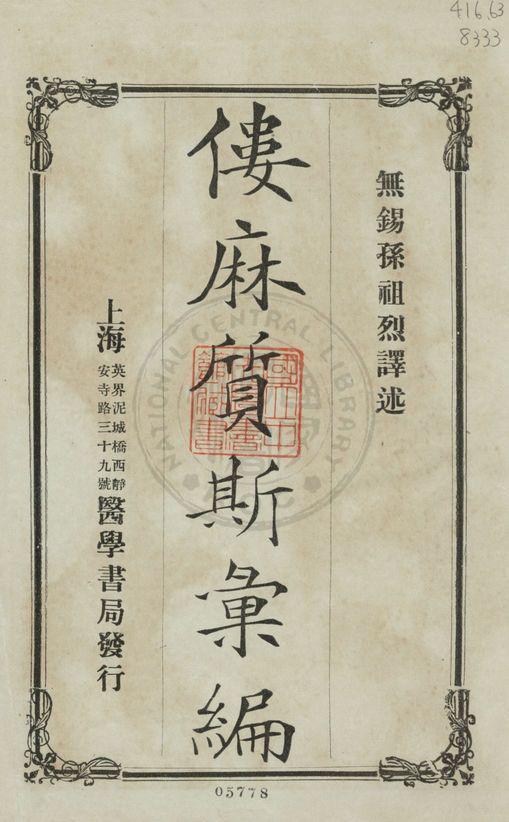 416.63
8333
無錫孫祖烈譯述
僂麻質斯彙編
上海英界泥城橋西靜安寺路三十九號醫學書局發行
NATIONAL CENTRAL LIBRARY
05778